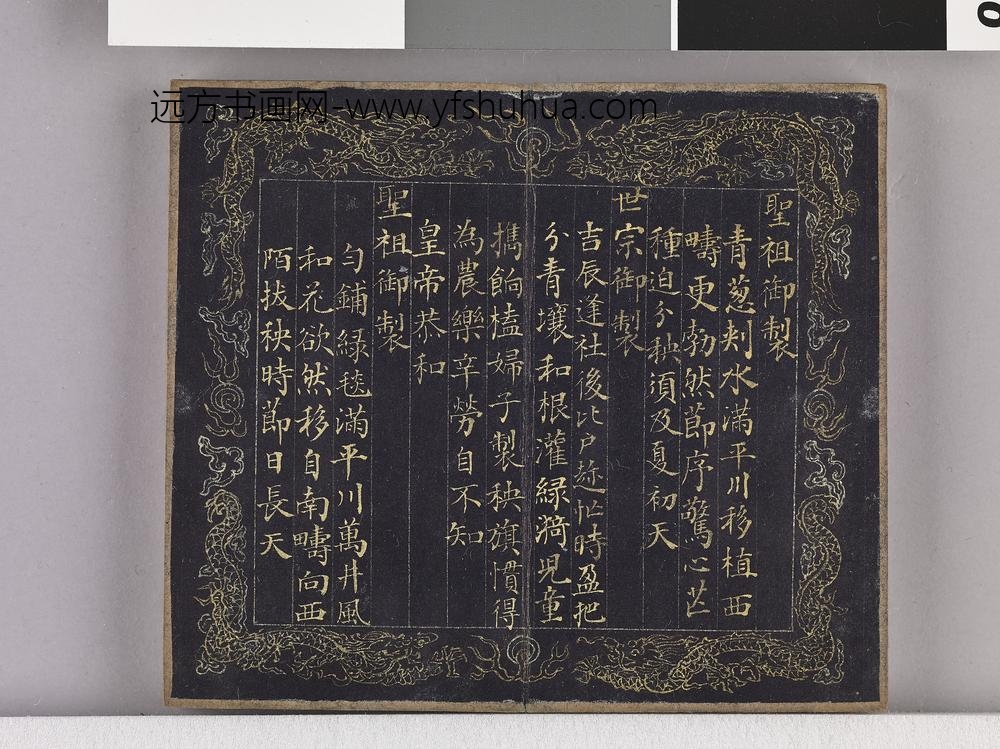 远方书画网-www.yfshuhua.com
聖祖御製
青葱刺水滿平川移植西
疇更勃然節序驚心芒
種迫分秧須及夏初天
世宗御製
吉辰逢社後比戶趂忙時盈把
分青壤和根灌綠漪兒童
攜餉榼婦子製秧旗慣得
為農樂辛勞自不知
皇帝恭和
聖祖御製
勻鋪綠毯滿平川萬井風
和花欲然移自南疇向西
陌拔秧時節日長天